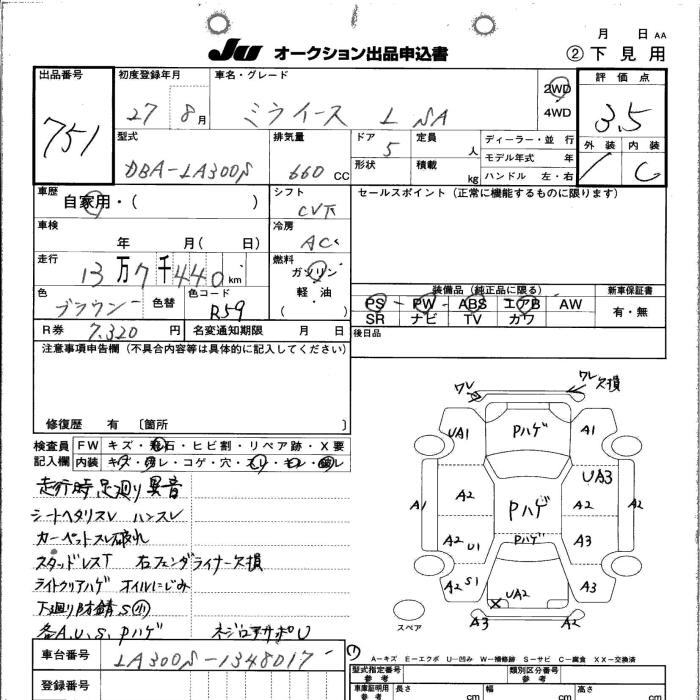 月 日 AA
JU オークション出品申込書 ②下見用
出品番号 初度登録年月 車名・グレード 2WD 4WD 評価点
751 27 8月 ミライース L SA 3.5
外装 内装
C
型式 排気量 ドア 定員 ディーラー・並行
DBA-LA300S 660 CC 5 人 モデル年式 年
形状 積載 kg ハンドル 左・右
車歴 シフト セールスポイント (正常に機能するものに限ります)
自家用・( ) CVT
車検 冷房
年 月( 日) AC
走行 燃料
13万7千440km ガソリン・軽・油 ( )
色 色替 色コード
ブラウン R59
装備品 (純正品に限る) 新車保証書
PS PW ABS エアB AW 有・無
SR ナビ TV カワ
R券 7,320円 名変通知期限 月 日 後日品
注意事項申告欄 (不具合内容等は具体的に記入してください)
修復歴 有 〔箇所 〕
検査員記入欄 FW キズ・飛石・ヒビ割・リペア跡・X要
内装 キズ・汚レ・コゲ・穴・スリ・モレ・
走行時足廻り異音
シートヘタリスレ ハンスレ
カーペットスレ破れ
スタッドレスT 右フェンダライナー欠損
ライトクリアハゲ オイルにじみ
下廻り防錆S小
各A,U,S,Pハゲ
車台番号 LA300S-1348017
登録番号
ワレ ワレ欠損
UA1 Pハゲ A1
UA3
A1 A2 Pハゲ A2 A2
A2 U1 Pハゲ A3
A2 S1 UA2 A3
X
スペア A3 A2
A-キズ E-エクボ U-凹み W-補修跡 S-サビ C-腐食 XX-交換済
型式指定番号 類別区分番号
参考 参考
車庫証明用 参考 長さ cm 幅 cm 高さ cm